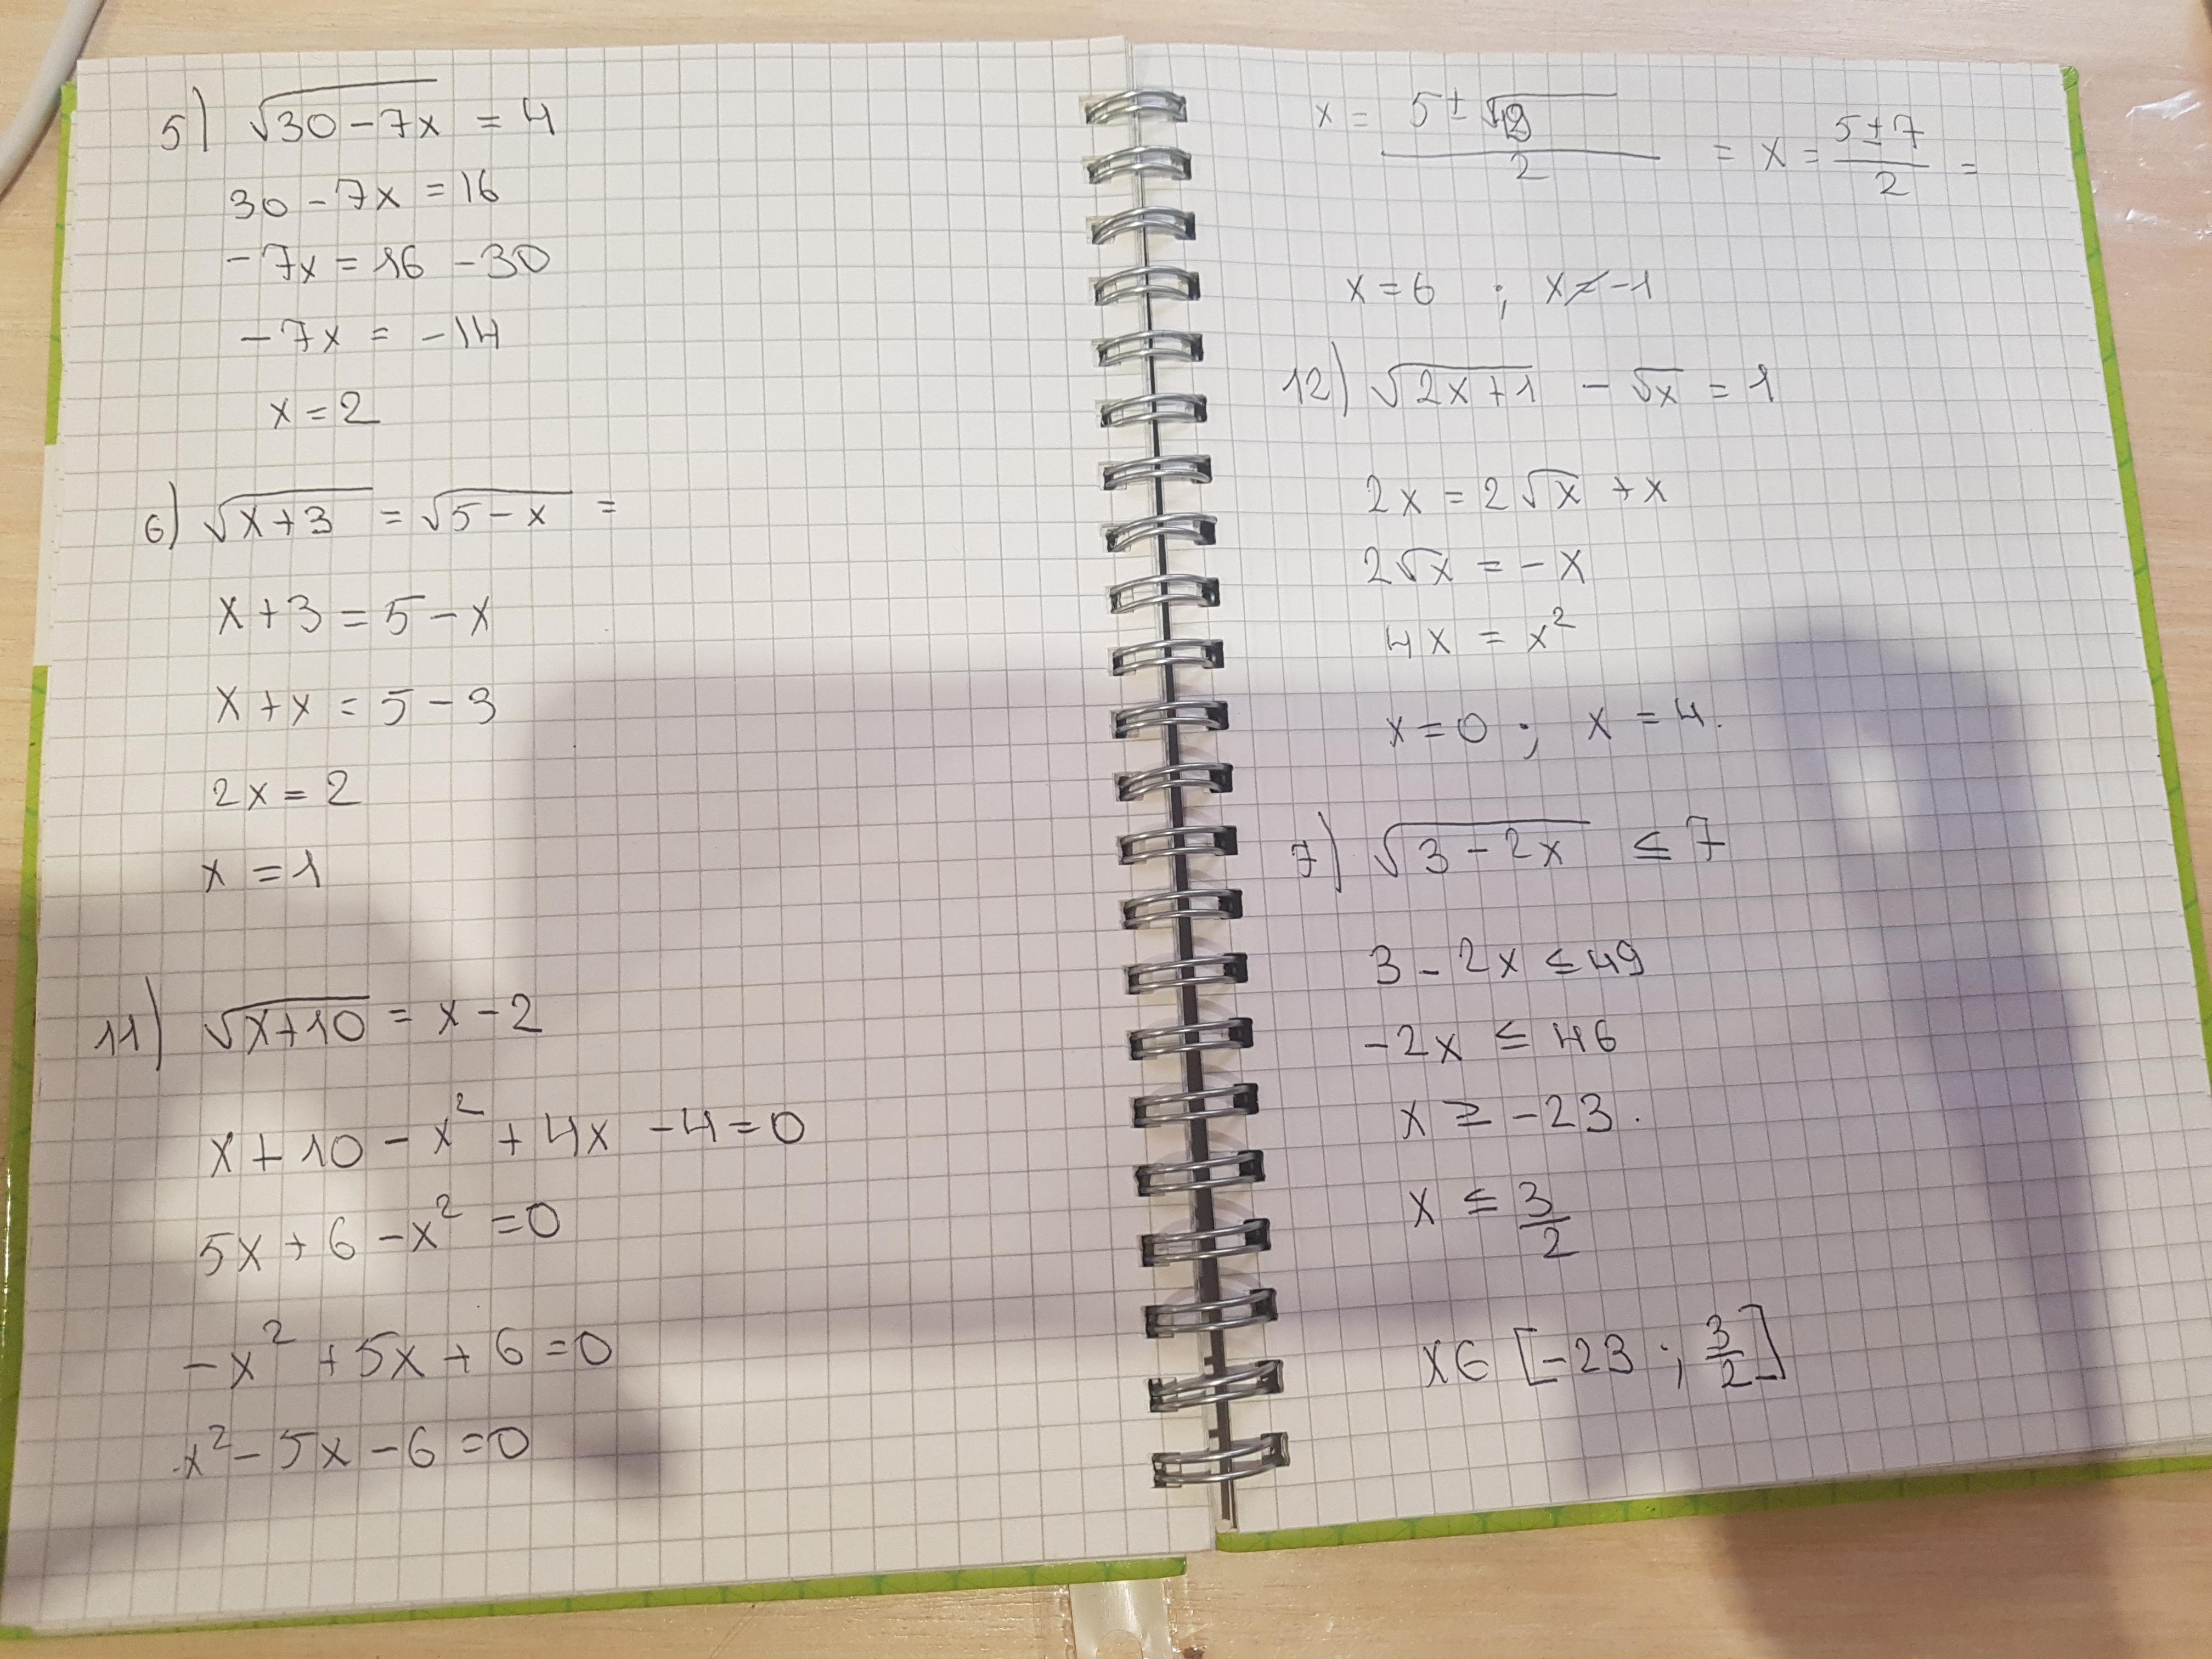 5) √30-7x = 4
30-7x = 16
-7x = 16 -30
-7x = -14
x = 2
6) √x+3 = √5-x =
x+3 = 5-x
x+x = 5-3
2x = 2
x = 1
11) √x+10 = x-2
x+10-x²+4x-4=0
5x+6-x²=0
-x²+5x+6=0
x²-5x-6=0
x = 5±√49/2 = x = 5±7/2 =
x=6 ; x≠-1
12) √2x+1 - √x = 1
2x = 2√x + x
2√x = -x
4x = x²
x=0 ; x=4.
7) √3-2x ≤ 7
3-2x ≤ 49
-2x ≤ 46
x ≥ -23.
x ≤ 3/2
x∈ [-23 ; 3/2]